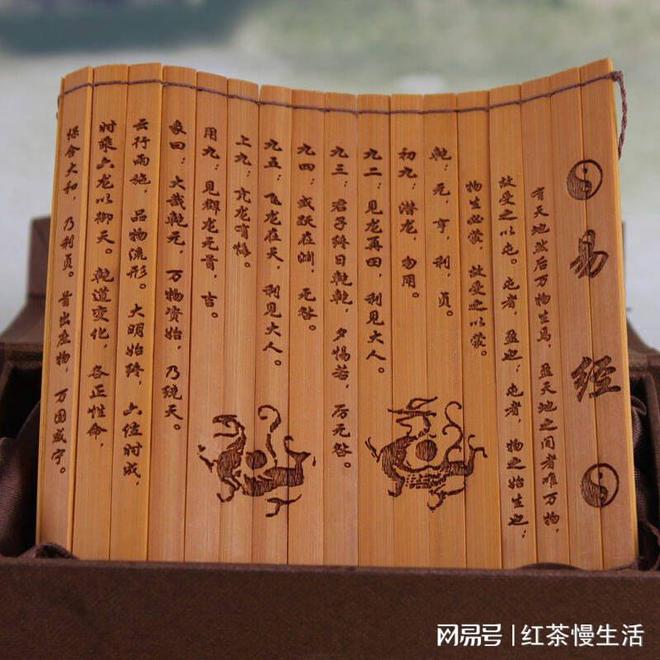 易经
有天地然后万物生焉，盈天地之间者唯万物，
故受之以屯。屯者，盈也；屯者，物之始生也；
物生必蒙，故受之以蒙。
乾：元，亨，利，贞。
初九：潜龙，勿用。
九二：见龙再田，利见大人。
九三：君子终日乾乾，夕惕若，厉无咎。
九四：或跃在渊，无咎。
九五：飞龙在天，利见大人。
上九：亢龙有悔。
用九：见群龙无首，吉。
彖曰：大哉乾元，万物资始，乃统天。
云行雨施，品物流形。大明始终，六位时成，
时乘六龙以御天。乾道变化，各正性命，
保合大和，乃利贞。首出庶物，万国咸宁。
网易号 | 红茶慢生活